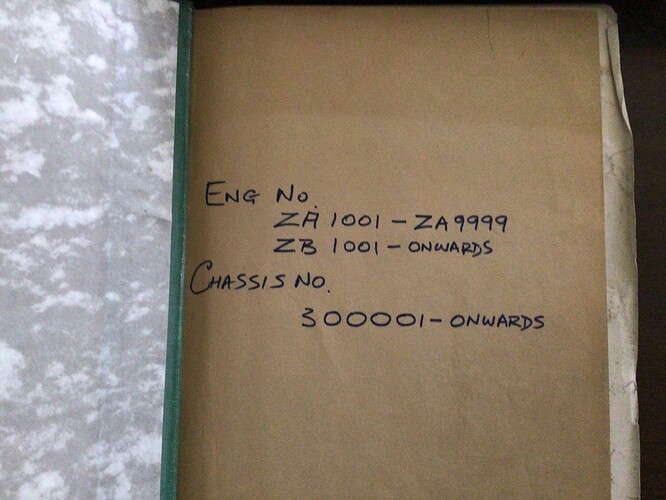 ENG NO.
ZA 1001 - ZA9999
ZB 1001 - ONWARDS
CHASSIS NO.
300001 - ONWARDS